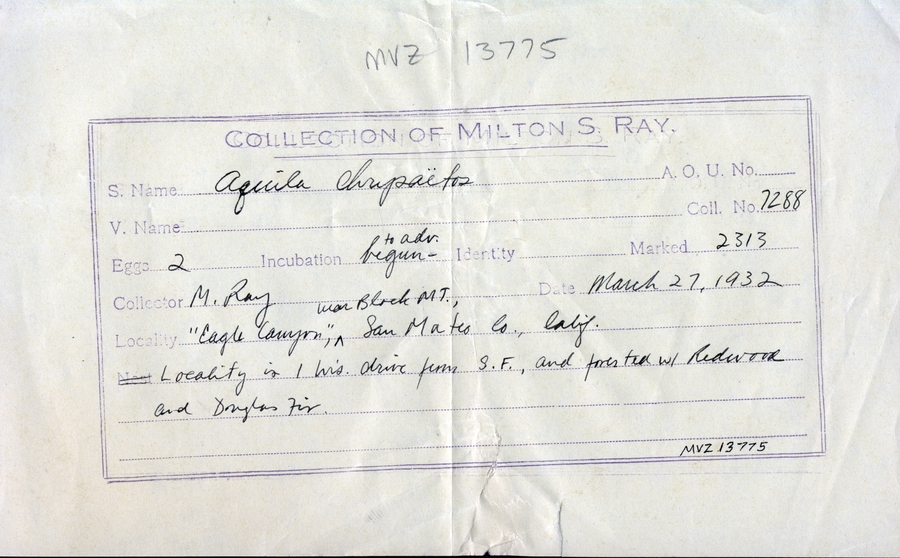 MVZ 13775
COLLECTION OF MILTON S. RAY.
S. Name Aquila Chrysaëtos A. O. U. No.
V. Name Coll. No. 7288
Eggs 2 Incubation begun- to adv. Identity Marked 2313
Collector M. Ray Date March 27, 1932
Locality "Eagle Canyon", near Black MT., San Mateo Co., Calif.
Nest Locality is 1 hrs. drive from S.F., and forested w/ Redwood
and Douglas Fir.
MVZ 13775